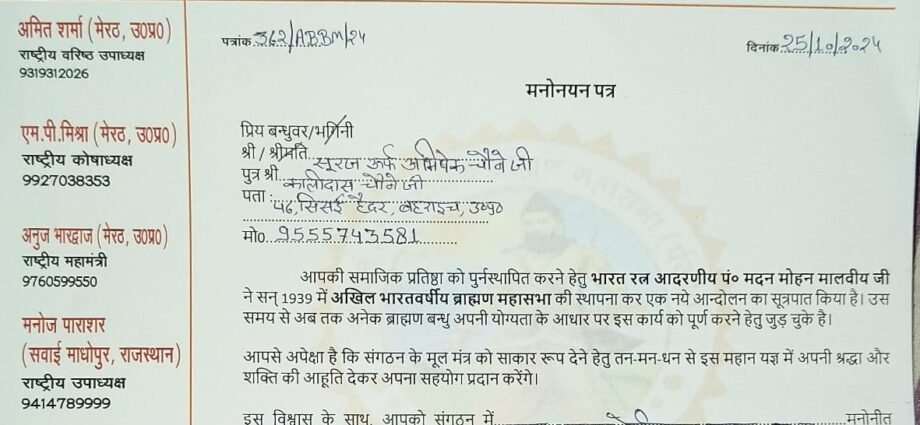 अमित शर्मा (मेरठ, उ0प्र0)
राष्ट्रीय वरिष्ठ उपाध्यक्ष
9319312026
एम.पी.मिश्रा (मेरठ, उ0प्र0)
राष्ट्रीय कोषाध्यक्ष
9927038353
अनुज भारद्वाज (मेरठ, उ0प्र0)
राष्ट्रीय महामंत्री
9760599550
मनोज पाराशर
(सवाई माधोपुर, राजस्थान)
राष्ट्रीय उपाध्यक्ष
9414789999
पत्रांक 362/ABBM/24
दिनांक 25/10/2024
मनोनयन पत्र
प्रिय बन्धुवर/भगिनी
श्री / श्रीमति सूरज ऊर्फ अभिषेक चौबे जी
पुत्र श्री कालीदास चौबे जी
पता : 56, सिसई हैदर, बहराइच, उ०प्र०
मो0 9555743581
आपकी समाजिक प्रतिष्ठा को पुर्नस्थापित करने हेतु भारत रत्न आदरणीय पं० मदन मोहन मालवीय जी
ने सन् 1939 में अखिल भारतवर्षीय ब्राह्मण महासभा की स्थापना कर एक नये आन्दोलन का सूत्रपात किया है। उस
समय से अब तक अनेक ब्राह्मण बन्धु अपनी योग्यता के आधार पर इस कार्य को पूर्ण करने हेतु जुड़ चुके है।
आपसे अपेक्षा है कि संगठन के मूल मंत्र को साकार रूप देने हेतु तन-मन-धन से इस महान यज्ञ में अपनी श्रद्धा और
शक्ति की आहूति देकर अपना सहयोग प्रदान करेंगे।
इस विश्वास के साथ, आपको संगठन में मनोनीत